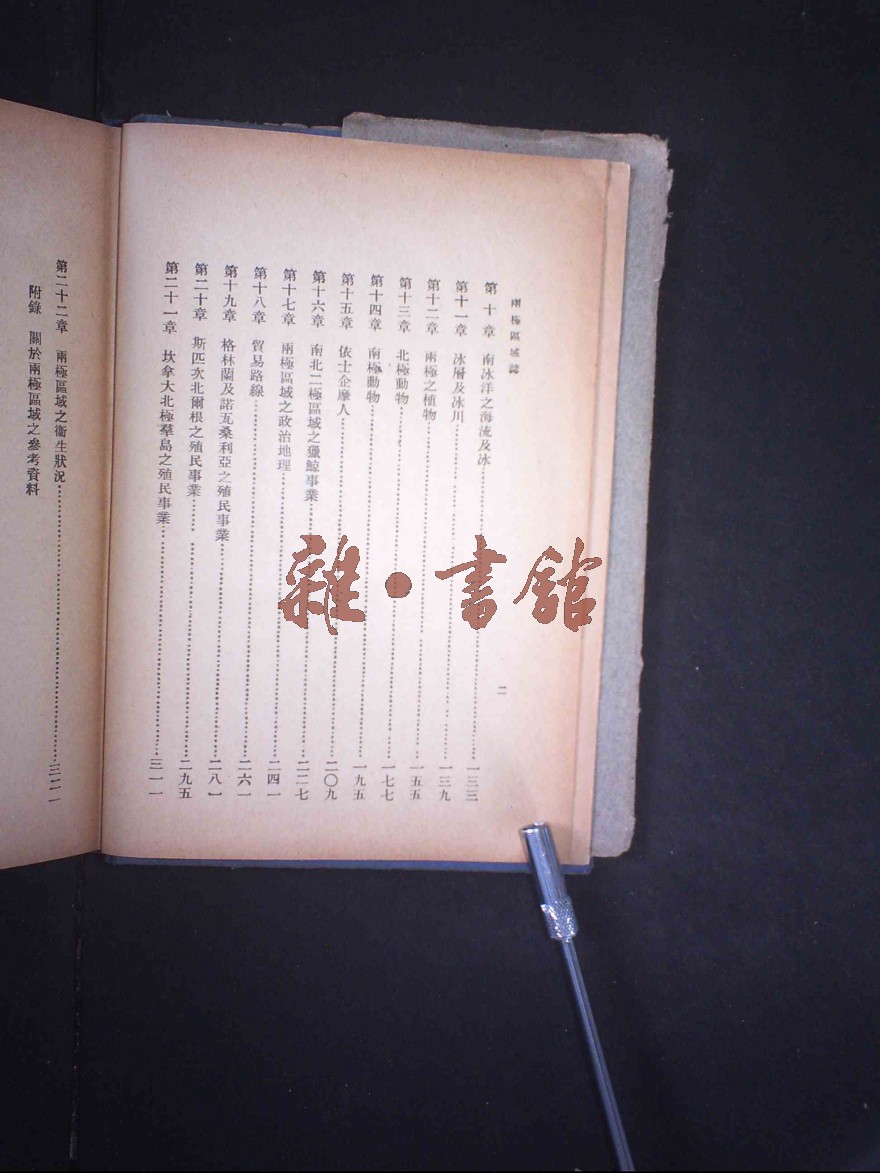 兩極區域誌
第十章 南冰洋之海流及冰……一三三
第十一章 冰層及冰川……一三九
第十二章 兩極之植物……一五五
第十三章 北極動物……一七七
第十四章 南極動物……一九五
第十五章 依士企摩人……二〇九
第十六章 南北二極區域之獵鯨事業……二二七
第十七章 兩極區域之政治地理……二四一
第十八章 貿易路線……二六一
第十九章 格林蘭及諾瓦桑利亞之殖民事業……二八一
第二十章 斯匹次北爾根之殖民事業……二九五
第二十一章 坎拿大北極羣島之殖民事業……三一一
二
第二十二章 兩極區域之衞生狀況……三二一
附錄 關於兩極區域之參考資料
雜·書館